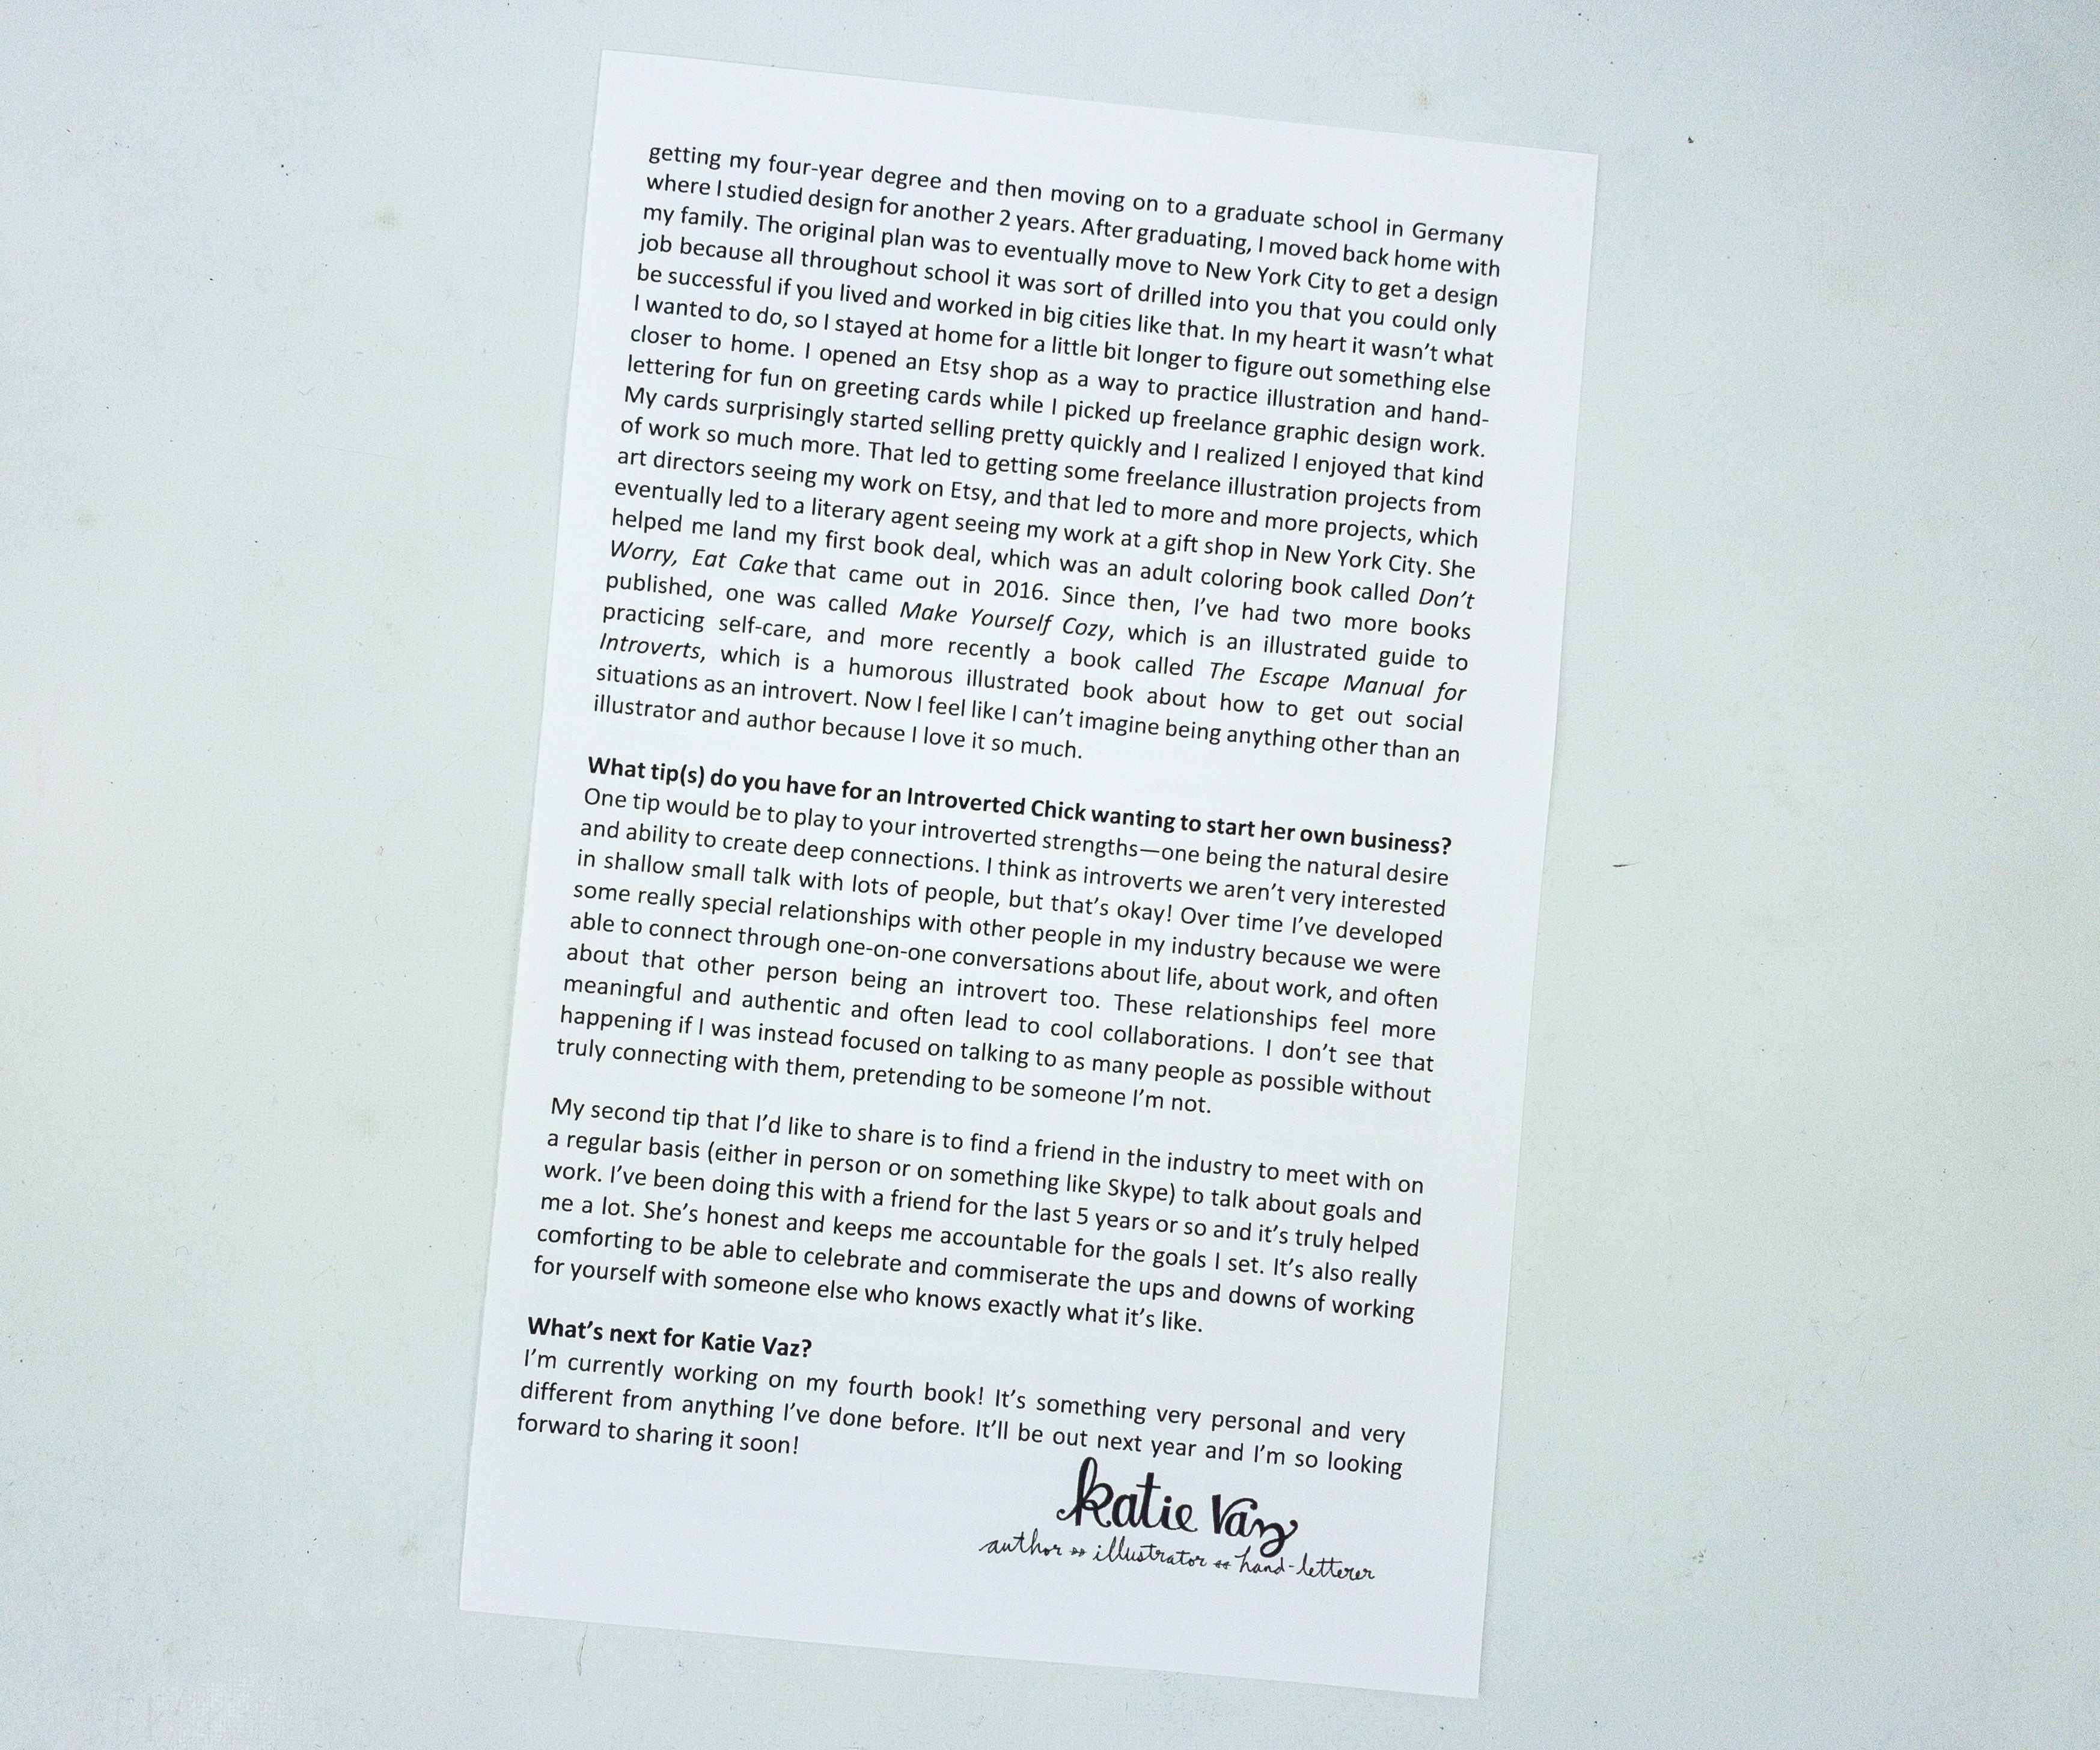 getting my four-year degree and then moving on to a graduate school in Germany
where I studied design for another 2 years. After graduating, I moved back home with
my family. The original plan was to eventually move to New York City to get a design
job because all throughout school it was sort of drilled into you that you could only
be successful if you lived and worked in big cities like that. In my heart it wasn't what
I wanted to do, so I stayed at home for a little bit longer to figure out something else
closer to home. I opened an Etsy shop as a way to practice illustration and hand-
lettering for fun on greeting cards while I picked up freelance graphic design work.
My cards surprisingly started selling pretty quickly and I realized I enjoyed that kind
of work so much more. That led to getting some freelance illustration projects from
art directors seeing my work on Etsy, and that led to more and more projects, which
eventually led to a literary agent seeing my work at a gift shop in New York City. She
helped me land my first book deal, which was an adult coloring book called Don't
Worry, Eat Cake that came out in 2016. Since then, I've had two more books
published, one was called Make Yourself Cozy, which is an illustrated guide to
practicing self-care, and more recently a book called The Escape Manual for
Introverts, which is a humorous illustrated book about how to get out social
situations as an introvert. Now I feel like I can't imagine being anything other than an
illustrator and author because I love it so much.
What tip(s) do you have for an Introverted Chick wanting to start her own business?
One tip would be to play to your introverted strengths—one being the natural desire
and ability to create deep connections. I think as introverts we aren't very interested
in shallow small talk with lots of people, but that's okay! Over time I've developed
some really special relationships with other people in my industry because we were
able to connect through one-on-one conversations about life, about work, and often
about that other person being an introvert too. These relationships feel more
meaningful and authentic and often lead to cool collaborations. I don't see that
happening if I was instead focused on talking to as many people as possible without
truly connecting with them, pretending to be someone I'm not.
My second tip that I'd like to share is to find a friend in the industry to meet with on
a regular basis (either in person or on something like Skype) to talk about goals and
work. I've been doing this with a friend for the last 5 years or so and it's truly helped
me a lot. She's honest and keeps me accountable for the goals I set. It's also really
comforting to be able to celebrate and commiserate the ups and downs of working
for yourself with someone else who knows exactly what it's like.
What's next for Katie Vaz?
I'm currently working on my fourth book! It's something very personal and very
different from anything I've done before. It'll be out next year and I'm so looking
forward to sharing it soon!
katie vaz
author illustrator hand-letterer